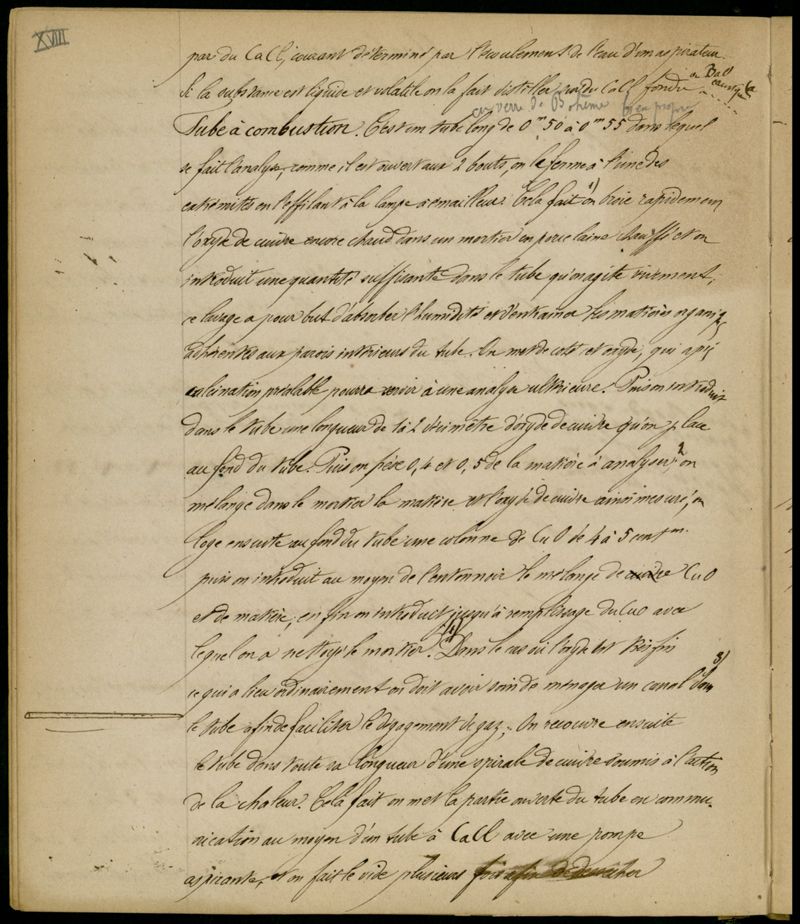 XVIII
par du CaCl, courant déterminé par l'écoulement de l'eau d'un aspirateur.
Si la substance est liquide et volatile on la fait distiller sur du CaCl fondu
ou BaO caustique
en verre de Bohême bien propre
Tube à combustion. C'est un tube long de 0m 50 à 0m 55 dans lequel
se fait l'analyse, comme il est ouvert aux 2 bouts, on le ferme à l'une des
extrémités en l'effilant à la lampe d'émailleur. Cela fait 1) on broie rapidement
l'oxyde de cuivre encore chaud dans un mortier en porcelaine chauffé et on
introduit une quantité suffisante dans le tube qu'on agite vivement,
ce lavage a pour but d'absorber l'humidité et d'entrainer les matières organiq
adhérentes aux parois intérieures du tube. On met de coté cet oxyde, qui après
calcination préalable pourra servir à une analyse ultérieure. Puis on introduit
dans le tube une longueur de 1 à 2 décimètre d'oxyde de cuivre qu'on place
au fond du tube. Puis on pèse 0,4 et 0,5 de la matière à analyser, 2 on
mélange dans le mortier la matière et l'oxyde de cuivre ainsi mesuré, on
loge ensuite au fond du tube une colonne de CuO de 4 à 5 centim.
puis on introduit au moyen de l'entonnoir le mélange de CuO
et de matière, enfin on introduit jusqu'à remplissage du CuO avec
lequel on a nettoyé le mortier. (4) Dans le cas où l'oxyde est très fin
ce qui a lieu ordinairement on doit avoir soin de ménager un canal dans 3)
le tube afin de faciliter le dégagement de gaz. On recouvre ensuite
le tube dans toute sa longueur d'une spirale de cuivre soumis à l'action
de la chaleur. Cela fait on met la partie ouverte du tube en commu-
nication au moyen d'un tube à CaCl avec une pompe
aspirante, et on fait le vide plusieurs fois afin de dessécher